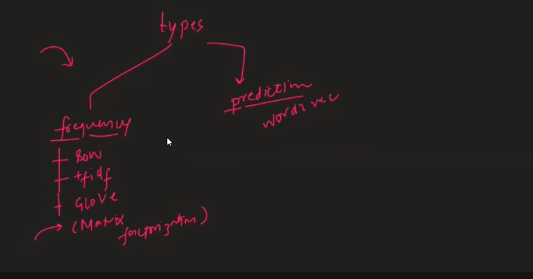 types
frequency
BOW
tfidf
GLOVe
(Matrix
factorization)
prediction
word2vec